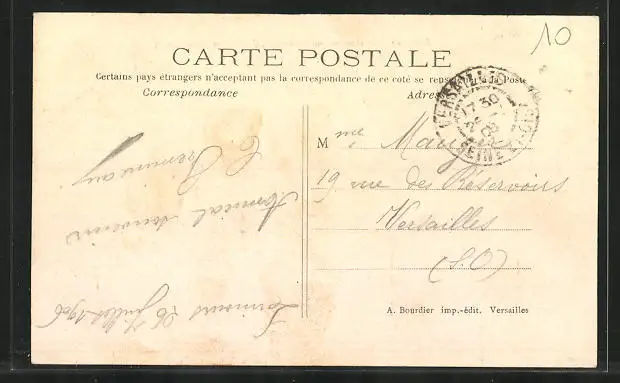 10
CARTE POSTALE
Certains pays étrangers n'acceptant pas la correspondance de ce coté se renseigner à la Poste
Correspondance
Adres
VERSAILLES
17 30
SEINE
Mme
19 rue des Réservoirs
Versailles
(S.O)
A. Bourdier imp.-édit. Versailles
26 Juillet 1906
Amical souvenir